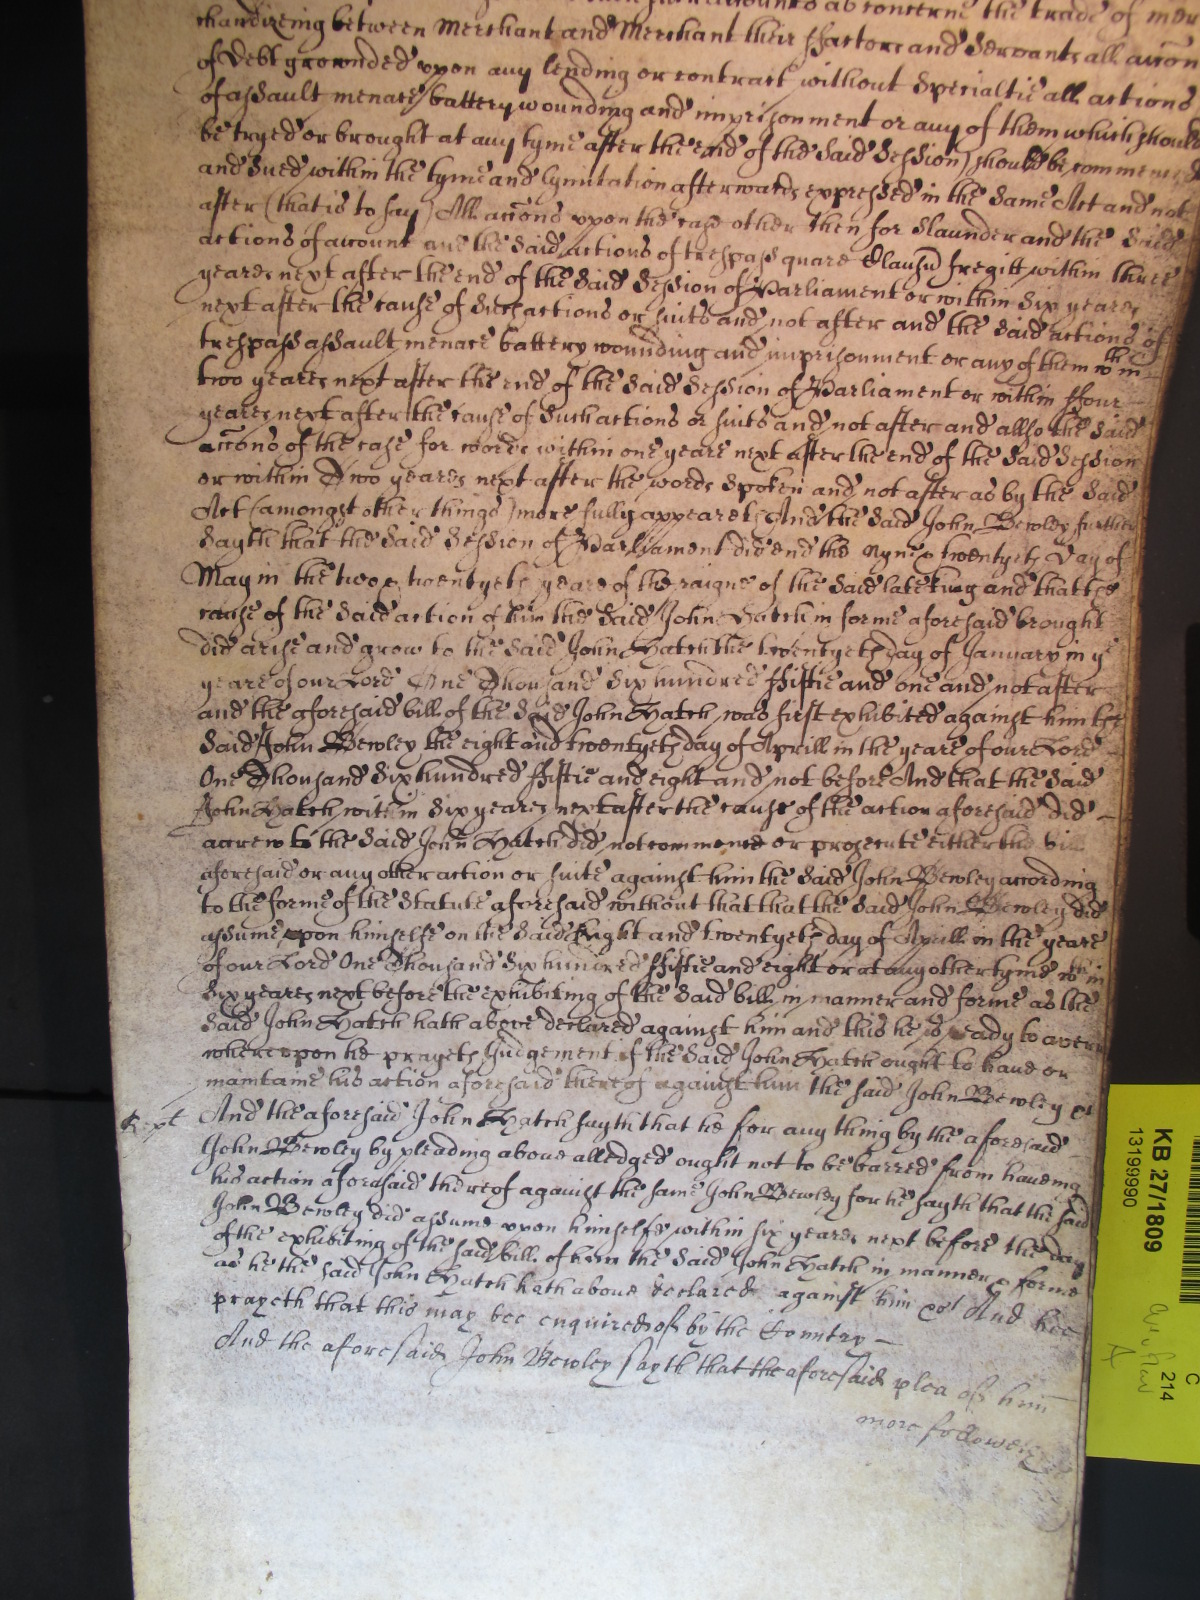 such accounts as concerne the trade of mer
chandizeing betweene Merchant and Merchant their ffactors and Servants all accons
of debt grounded upon any lending or contract without Specialtie all actions
of assault menace battery wounding and imprisonment or any of them which should
be tryed or brought at any tyme after the end of the said Session should be commenced
and sued within the tyme and Lymitation afterwards expressed in the same Act and not
after (that is to say) All accons upon the case other then for Slaunder and the said
actions of account and the said actions of trespass quare Clausu fregitt within three
yeares next after the end of the said Session of Parliament or within six yeares
next after the cause of such actions or suits and not after and the said actions of
trespass assault menace battery wounding and imprisonment or any of them wthin
two yeares next after the end of the said Session of Parliament or within ffour
yeares next after the cause of such actions or suits and not after and allso the said
accons of the case for words within one yeare next after the end of the said Session
or within Two yeares next after the words Spoken and not after as by the said
Act (amongst other things) more fully appeareth And the said John Bewley further
sayth that the said Session of Parliament did end the nyne & twentyeth day of
May in the two & twentyeth yeare of the raigne of the said late King and that the
cause of the said action of him the said John Hatch in forme aforesaid brought
did arise and grow to the said John Hatch the twentyeth day of January in ye
yeare of our Lord One Thousand Six hundred ffiftie and one and not after
and the aforesaid bill of the said John Hatch was first exhibited against him the
said John Bewley the eight and twentyeth day of Aprill in the yeare of our Lord
One Thousand Six hundred ffiftie and eight and not before And that the said
John Hatch within six yeares next after the cause of the action aforesaid did
accrew to the said John Hatch did not commence or prosecute either the bill
aforesaid or any other action or suite against him the said John Bewley according
to the forme of the Statute aforesaid without that that the said John Bewley did
assume upon himselfe on the said Eight and twentyeth day of Aprill in the yeare
of our Lord One Thousand Six hundred ffiftie and eight or at any other tyme wthin
six yeares next before the exhibiting of the said bill in manner and forme as the
said John Hatch hath above declared against him and this he is ready to averr
whereupon he prayeth Judgement if the said John Hatch ought to have or
maintaine his action aforesaid thereof against him the said John Bewley &c
Rept And the aforesaid John Hatch sayth that he for any thing by the aforesaid
John Bewley by pleading above alledged ought not to be barred from haveing
his action aforesaid thereof against the same John Bewley for he sayth that the said
John Bewley did assume upon himselfe within six yeares next before the day
of the exhibiting of the said bill of him the said John Hatch in manner & forme
as he the said John Hatch hath above declared against him &c And hee
prayeth that this may bee enquired of by the Country
And the aforesaid John Bewley sayth that the aforesaid plea of him
more followeth
KB 27/1809
13199990
C
214